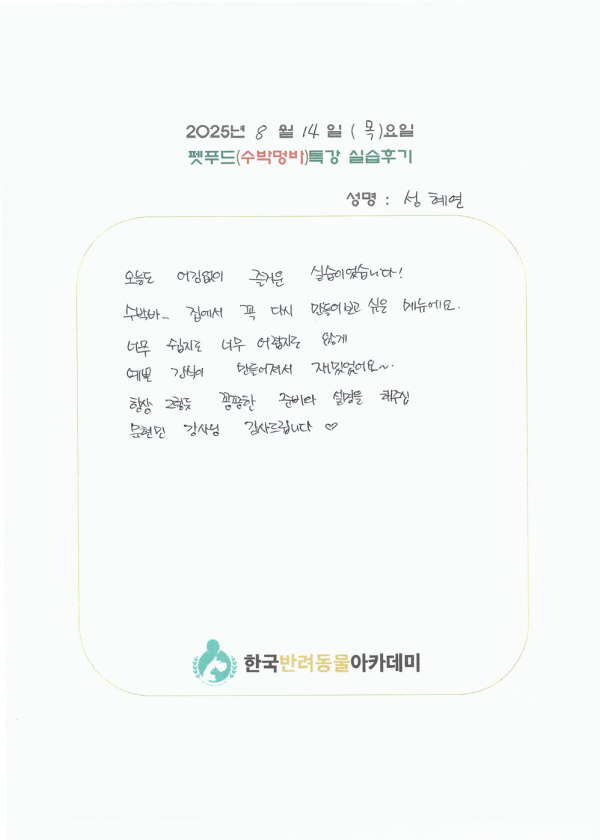 2025년 8 월 14 일 ( 목 )요일
펫푸드(수박멍바)특강 실습후기
성명 : 성혜연
오늘도 어김없이 즐거운 실습이였습니다!
수박바... 집에서 꼭 다시 만들어보고 싶은 메뉴에요.
너무 쉽지도 너무 어렵지도 않게
예쁜 간식이 만들어져서 재밌었어요~.
항상 그렇듯 꼼꼼한 준비와 설명을 해주신
문현민 강사님 감사드립니다 ♡
한국반려동물아카데미